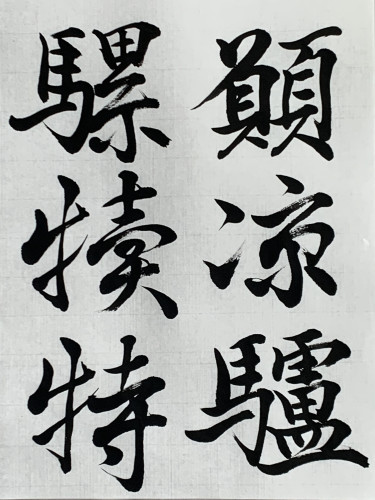 願凉驢
騾犢特